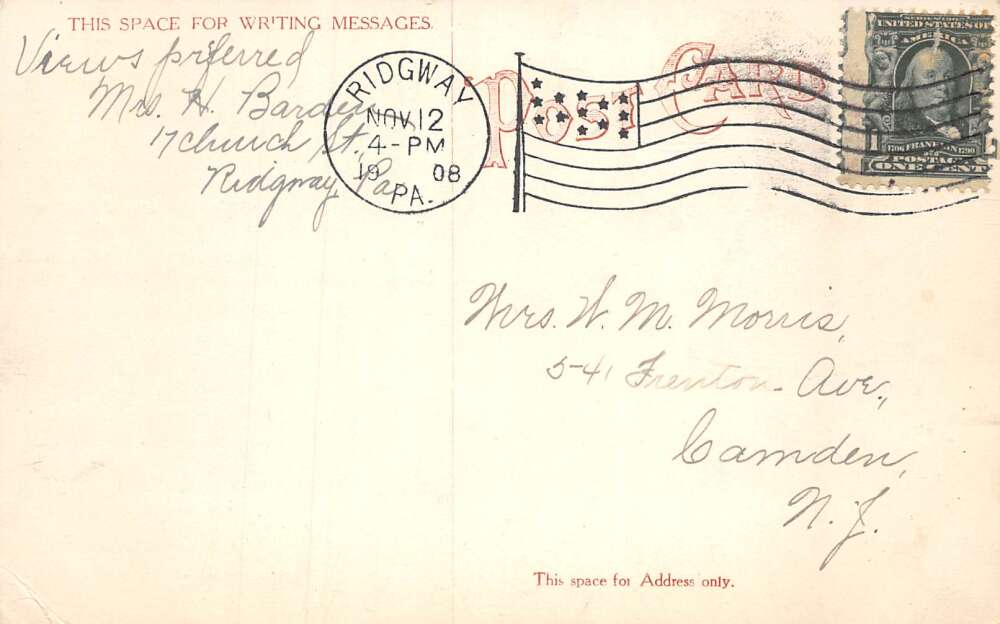 THIS SPACE FOR WRITING MESSAGES.
Views preferred
Mrs. H. Barden
17 Church St.,
Ridgway, Pa.
RIDGWAY
NOV 12
4-PM
1908
PA.
POST CARD
SERIES 1902
UNITED STATES OF
AMERICA
1706 FRANKLIN 1790
POSTAGE
1 ONE CENT
Mrs. W. M. Morris,
541 Trenton Ave.,
Camden,
N. J.
This space for Address only.